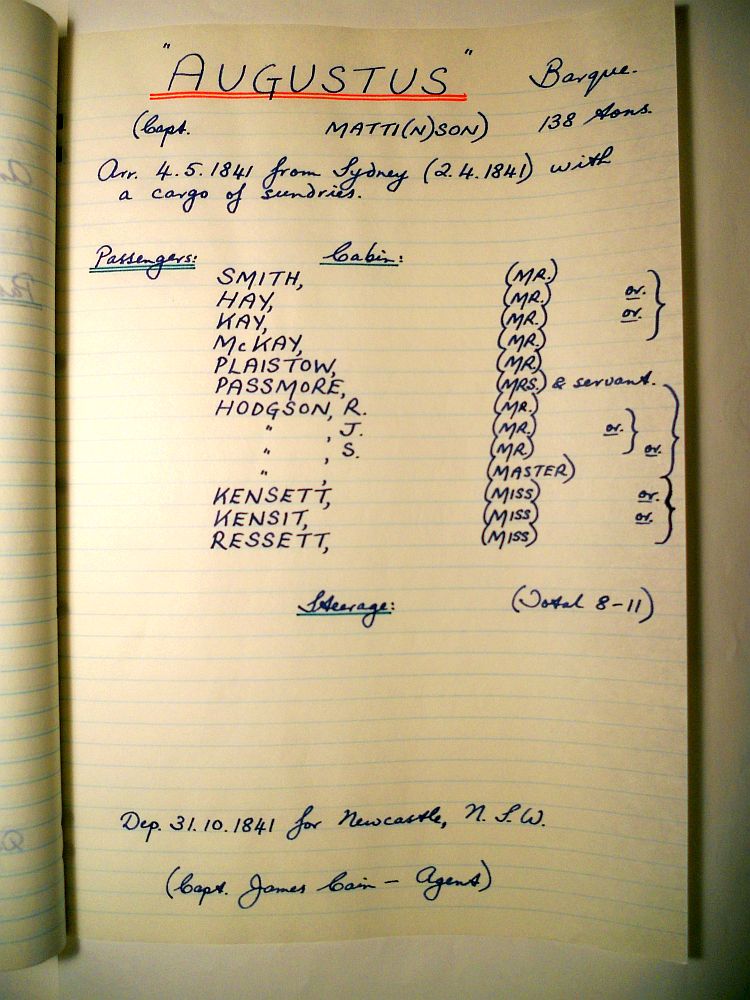 "AUGUSTUS" Barque.
(Capt. MATTI(N)SON) 138 tons.
Arr. 4.5.1841 from Sydney (2.4.1841) with
a cargo of sundries.
Passengers: Cabin:
SMITH, (MR.)
HAY, (MR.) or.
KAY, (MR.) or.
McKAY, (MR.)
PLAISTOW, (MR.)
PASSMORE, (MRS.) & servant.
HODGSON, R. (MR.)
" , J. (MR.) or.
" , S. (MR.) or.
" , (MASTER)
KENSETT, (MISS) or.
KENSIT, (MISS) or.
RESSETT, (MISS)
Steerage: (Total 8-11)
Dep. 31.10.1841 for Newcastle, N.S.W.
(Capt. James Cain - Agent)